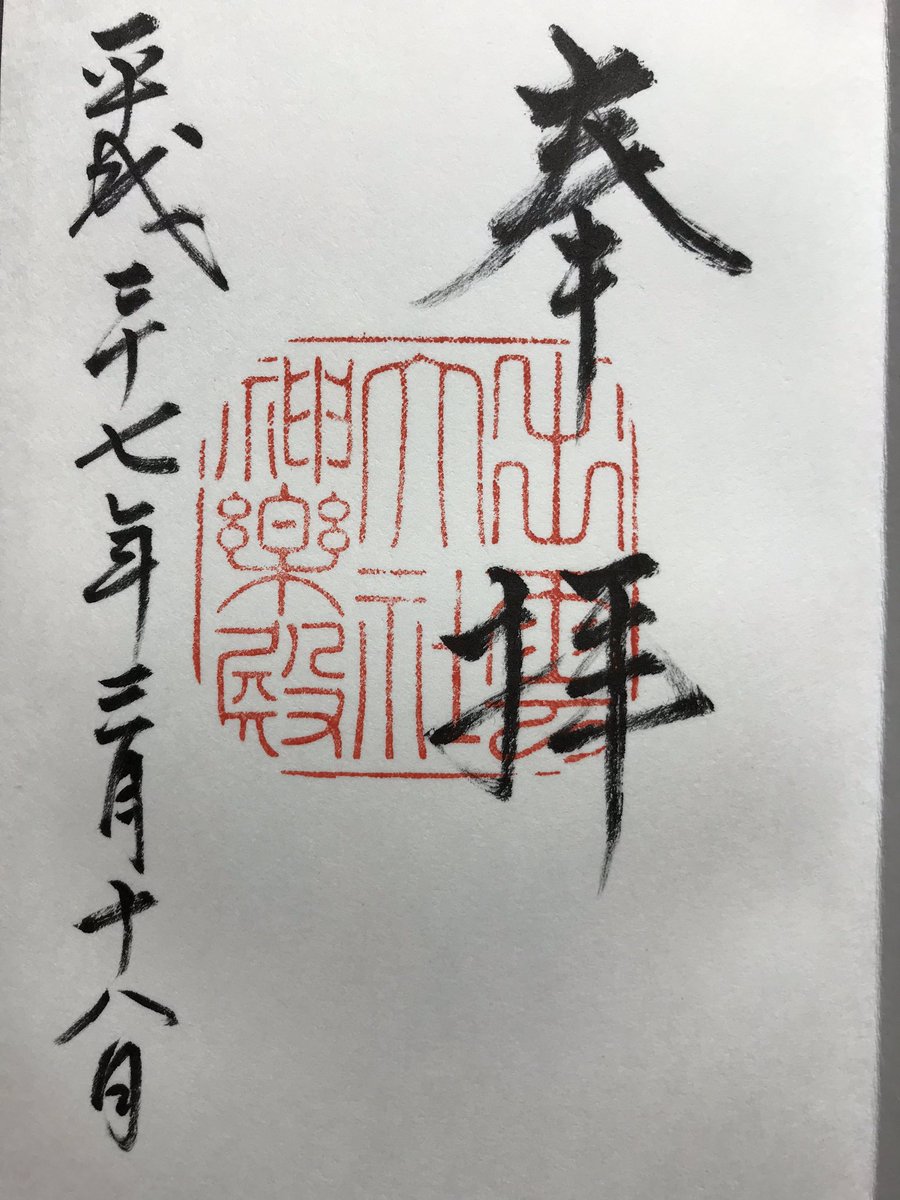 奉拝
出雲
大社
神楽殿
平成二十七年三月十八日